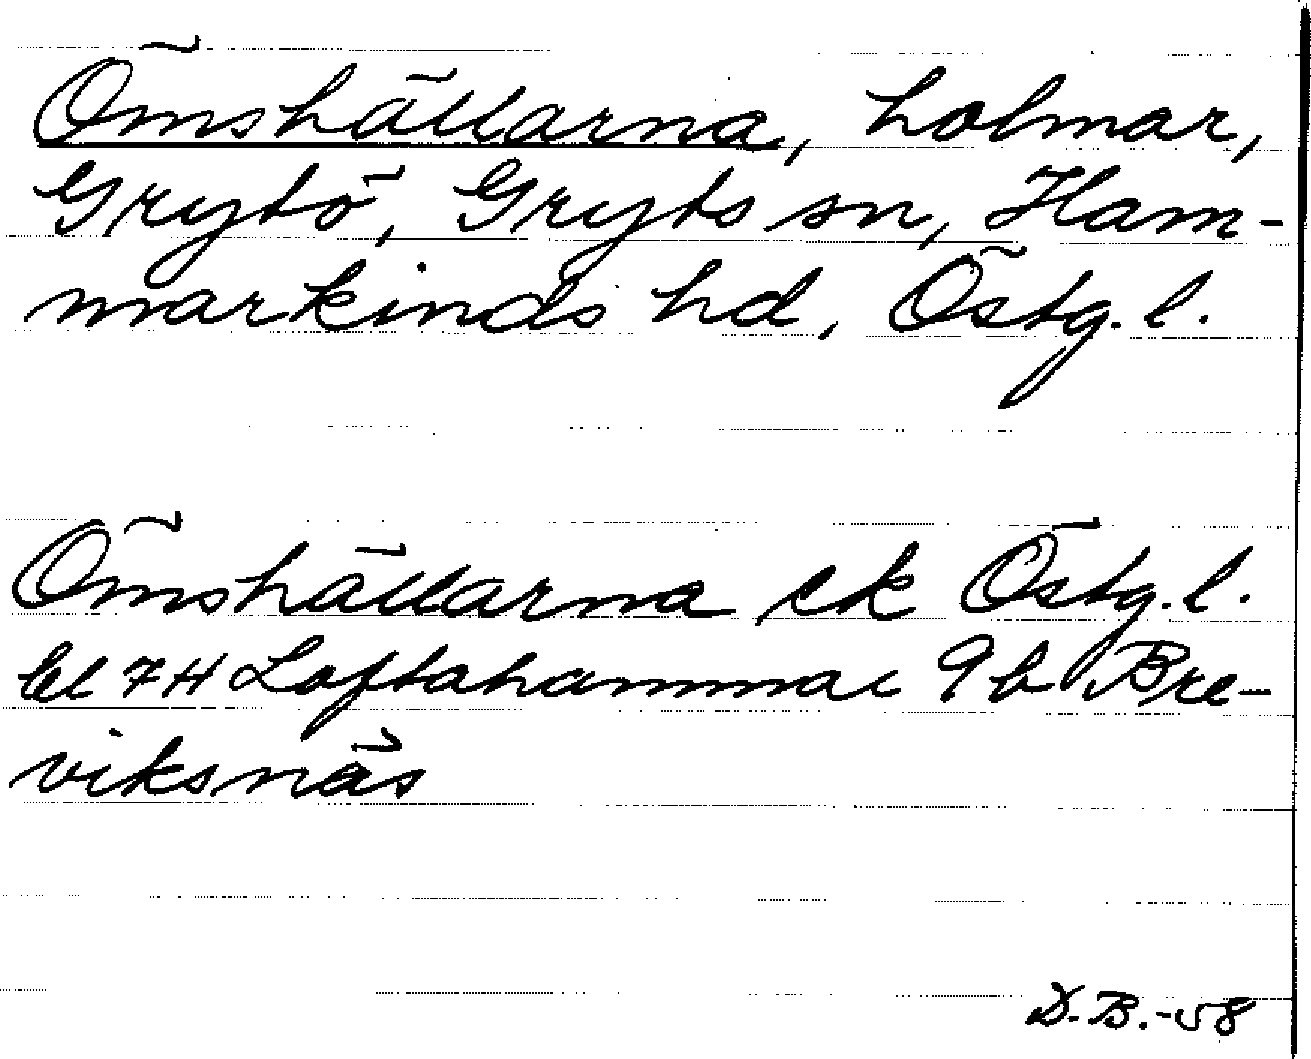 Ömshällarna, holmar,
Grytö, Gryts sn, Ham-
markinds hd, Östg. l.
Ömshällarna ek Östg. l.
bl 7H Loftahammar 9b Bre-
viksnäs
D.B.-58